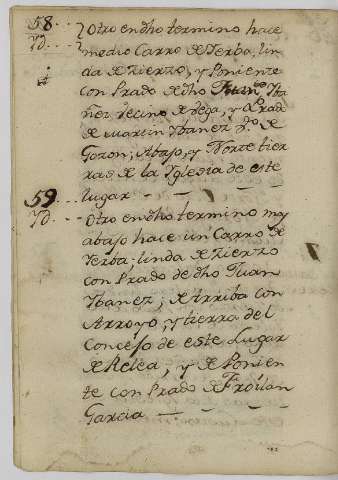 58... Otro en dho termino hace
Yd... medio Carro de Yerba, lin
da de Zierzo, y Poniente
con Prado de dho Juan Yba
ñez vecino de Vega, y Prado
de Martin Ybanez Vo. de
Gozon; Abajo, y Norte tier
ras de la Yglesia de este
59... lugar — — — —
Yd... Otro en dho termino mas
abajo hace un Carro de
Yerba linda de Zierzo
con Prado de dho Juan
Ybanez; de Arriba con
Arroyo, y tierra del
Concejo de este Lugar
de Relea, y de Ponien
te con Prado de Froilan
Garcia — — — —